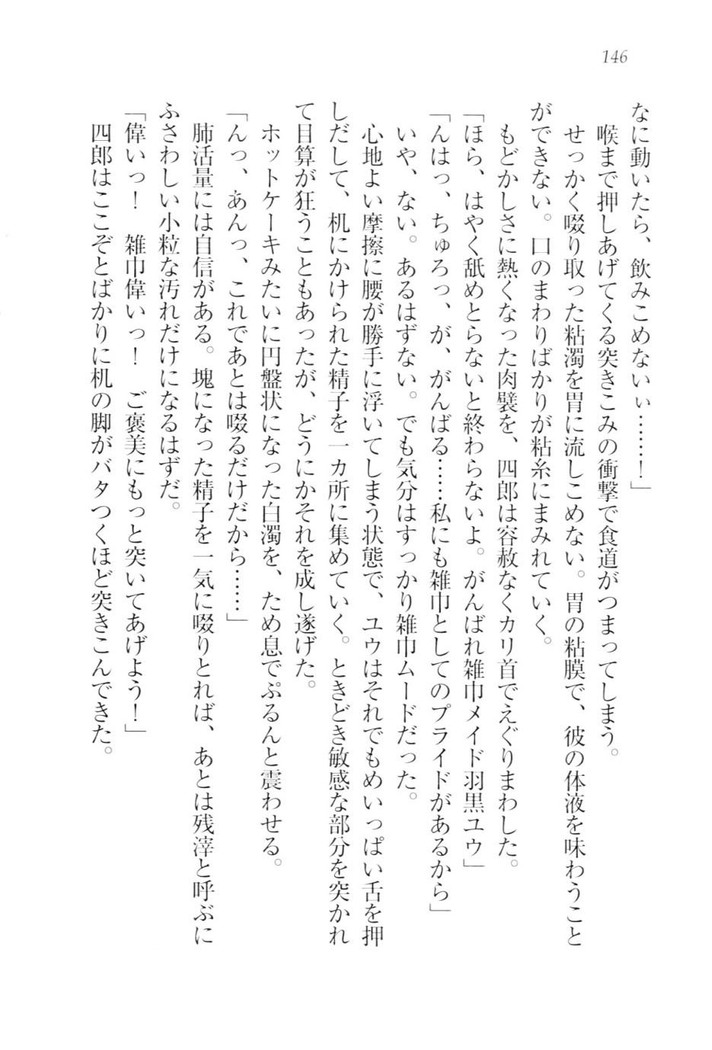 146
なに動いたら、飲みこめないぃ……！」
喉まで押しあげてくる突きこみの衝撃で食道がつまってしまう。
せっかく啜り取った粘濁を胃に流しこめない。胃の粘膜で、彼の体液を味わうこと
ができない。口のまわりばかりが粘糸にまみれていく。
もどかしさに熱くなった肉襞を、四郎は容赦なくカリ首でえぐりまわした。
「ほら、はやく舐めとらないと終わらないよ。がんばれ雑巾メイド羽黒ユウ」
「んはっ、ちゅろっ、が、がんばる……私にも雑巾としてのプライドがあるから」
いや、ない。あるはずない。でも気分はすっかり雑巾ムードだった。
心地よい摩擦に腰が勝手に浮いてしまう状態で、ユウはそれでもめいっぱい舌を押
しだして、机にかけられた精子を一カ所に集めていく。ときどき敏感な部分を突かれ
て目算が狂うこともあったが、どうにかそれを成し遂げた。
ホットケーキみたいに円盤状になった白濁を、ため息でぷるんと震わせる。
「んっ、あんっ、これであとは啜るだけだから……」
肺活量には自信がある。塊になった精子を一気に啜りとれば、あとは残滓と呼ぶに
ふさわしい小粒な汚れだけになるはずだ。
「偉いっ！　雑巾偉いっ！　ご褒美にもっと突いてあげよう！」
四郎はここぞとばかりに机の脚がバタつくほど突きこんできた。